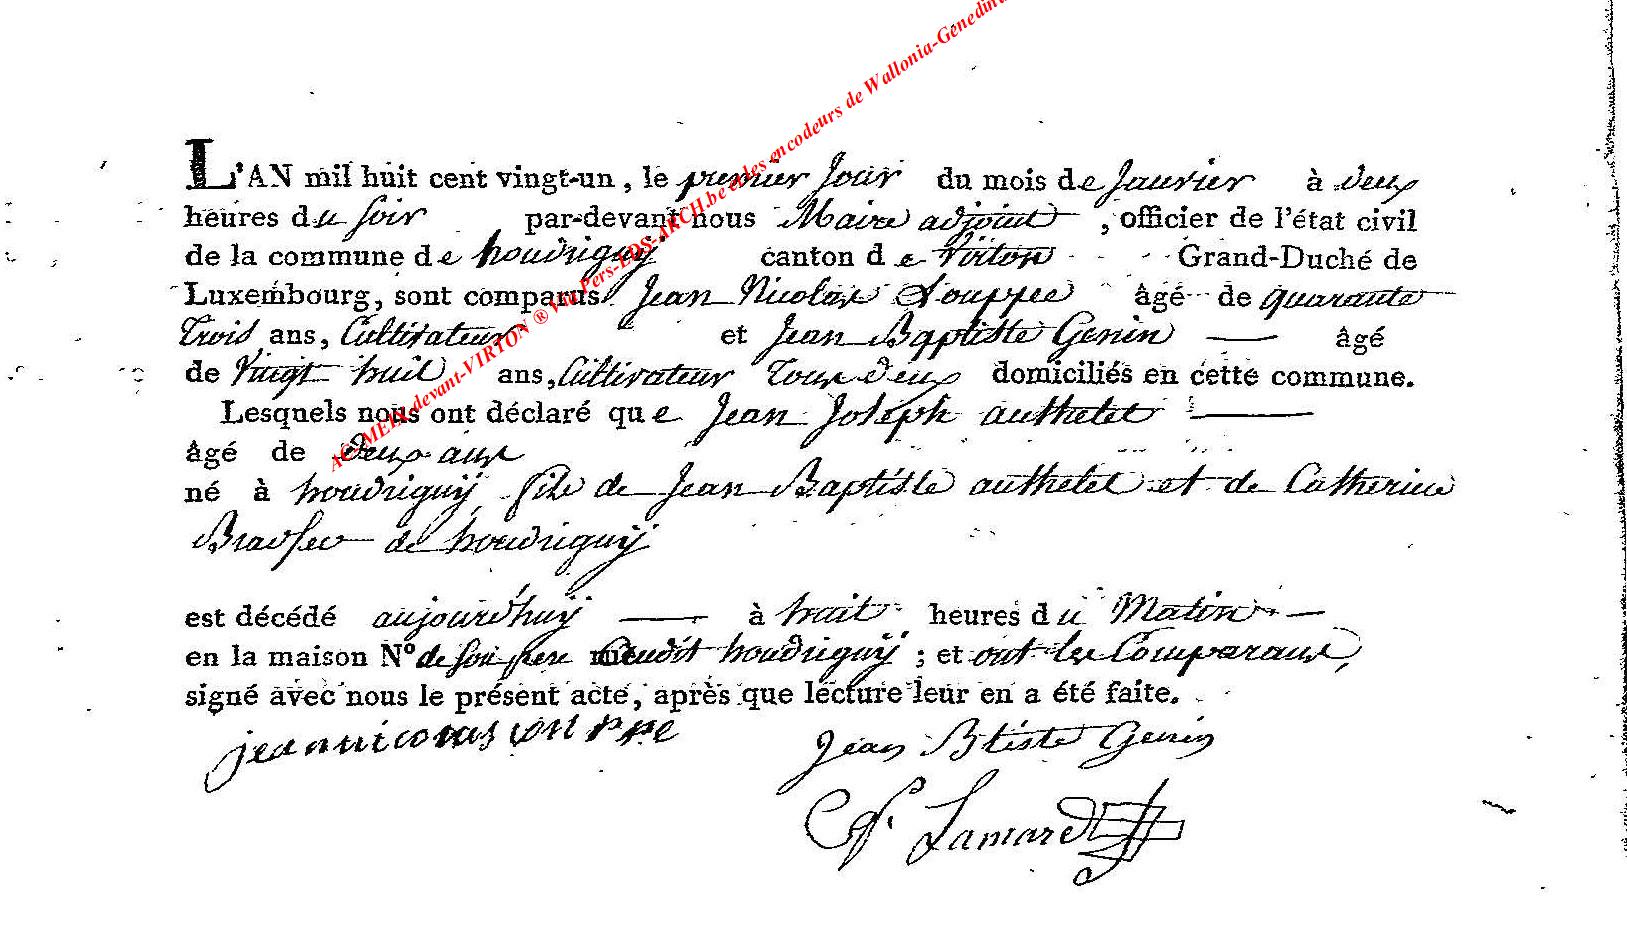 L'AN mil huit cent vingt-un, le premier jour du mois de janvier à deux
heures du soir par-devant nous Maire adjoint, officier de l'état civil
de la commune de houdrigny canton de Virton Grand-Duché de
Luxembourg, sont comparus Jean Nicolas Souppe âgé de quarante
Trois ans, Cultivateur et Jean Baptiste Genin âgé
de Vingt huit ans, Cultivateur Tous Deux domiciliés en cette commune.
Lesquels nous ont déclaré que Jean Joseph authelet
âgé de deux ans
né à houdrigny, fils de Jean Baptiste authelet et de Catherine
de houdrigny
est décédé aujourd'huy à huit heures du Matin
en la maison N° de son pere audit houdrigny; et ont les Comparans,
signé avec nous le présent acte, après que lecture leur en a été faite.
jean nicolas souppe Jean Btiste Genin
Lamard
AC-MEIX-devant-VIRTON ® Via Pers-LDS-ARCH.be et les encodeurs de Wallonia-Genedina